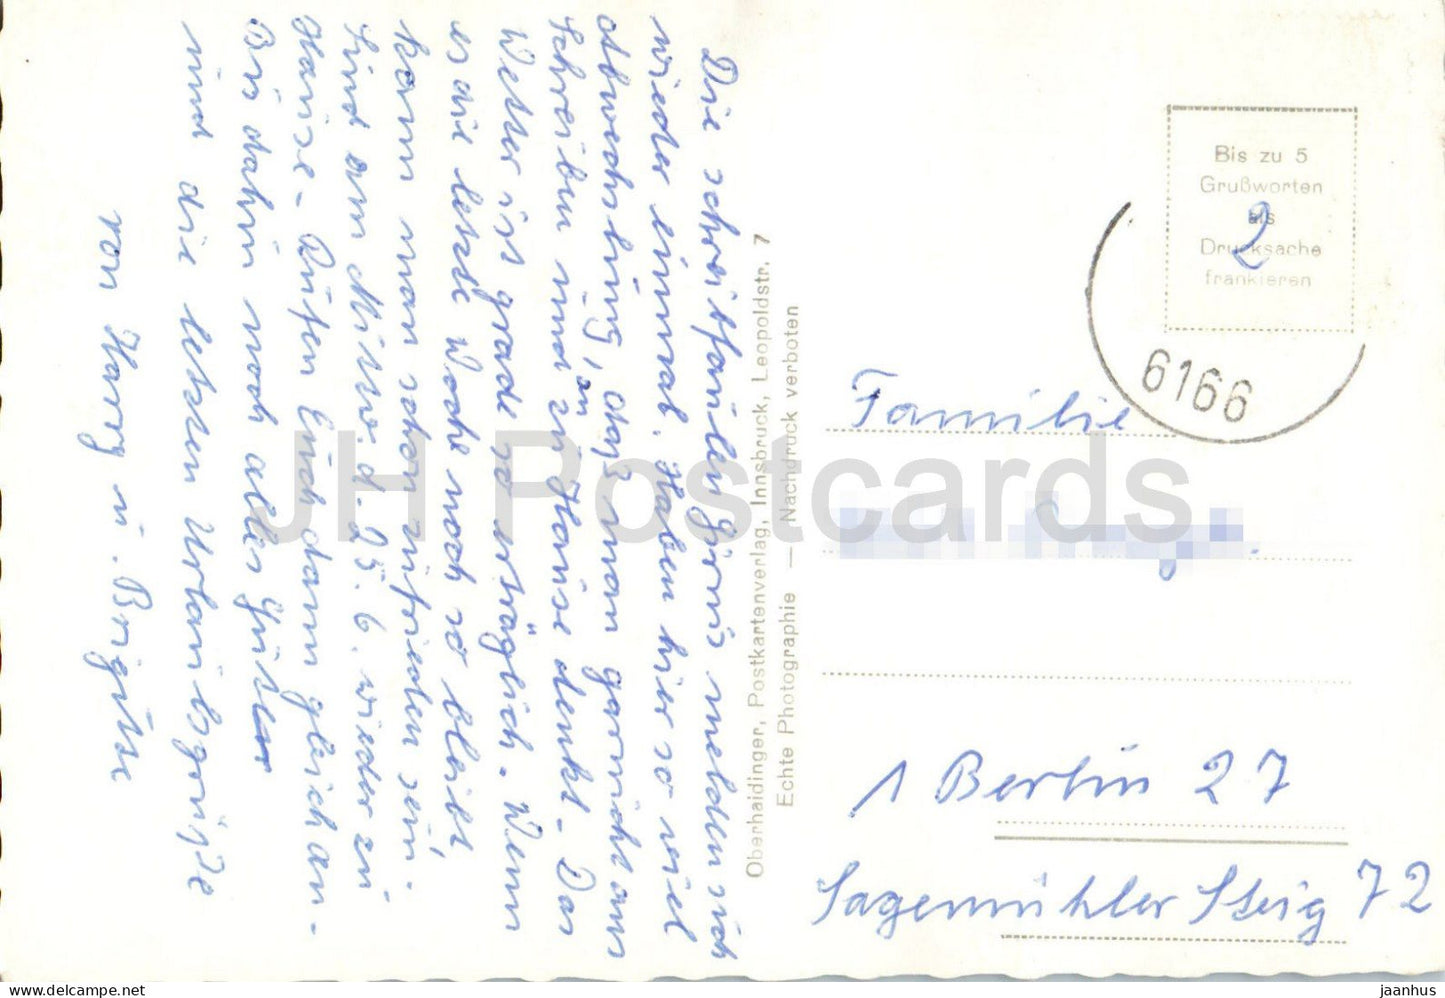 Die schreibfaulen Girois melden sich
wieder einmal. Haben hier so viel
Abwechslung, daß man garnicht ans
Schreiben und an zu Hause denkt. Das
Wetter ist grade so erträglich. Wenn
es die letzte Woche noch so bleibt,
kann man schon zufrieden sein.
Sind am Mittw. d. 25. 6. wieder zu
Hause. Rufen Euch dann gleich an.
Bis dahin noch alles Gute
und die letzten Urlaubsgrüße
von Harry u. Brigitte
Oberhaidinger, Postkartenverlag, Innsbruck, Leopoldstr. 7
Echte Photographie — Nachdruck verboten
Bis zu 5
Grußworten
als
Drucksache
frankieren
2
6166
Familie
1 Berlin 27
Sagemühler Steig 72
JH Postcards
jaanhus | delcampe.net